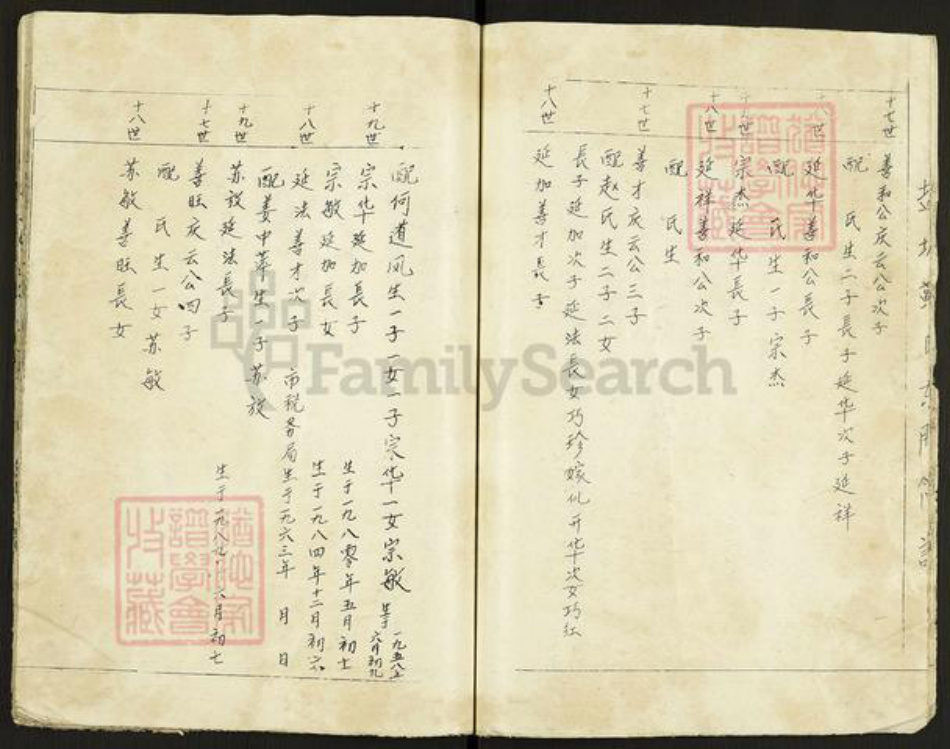 十七世 善和公庆云公次子
配 氏生二子長子延华次子延祥
十八世 延华善和公長子
配 氏生一子宗杰
十九世 宗杰延华長子
十八世 延祥善和公次子
配 氏生
十七世 善才庆云公三子
配赵氏生二子二女
長子延加次子延法長女巧珍嫁 开华次女巧红
十八世 延加善才長子
配何道凤生一子一女一子宗华一女宗敏 生于一九五八年六月初九
十九世 宗华延加長子 生于一九八零年五月初七
宗敏延加長女 生于一九八四年十二月初六
十八世 延法善才次子 市税务局生于一九六三年 月 日
配姜中苹生一子苏
十九世 苏 延法長子 生于一九八七 六月初七
十七世 善旺庆云公四子
配 氏生一女苏敏
十八世 苏敏善旺長女
FamilySearch
譜學會
收藏
譜學會
收藏